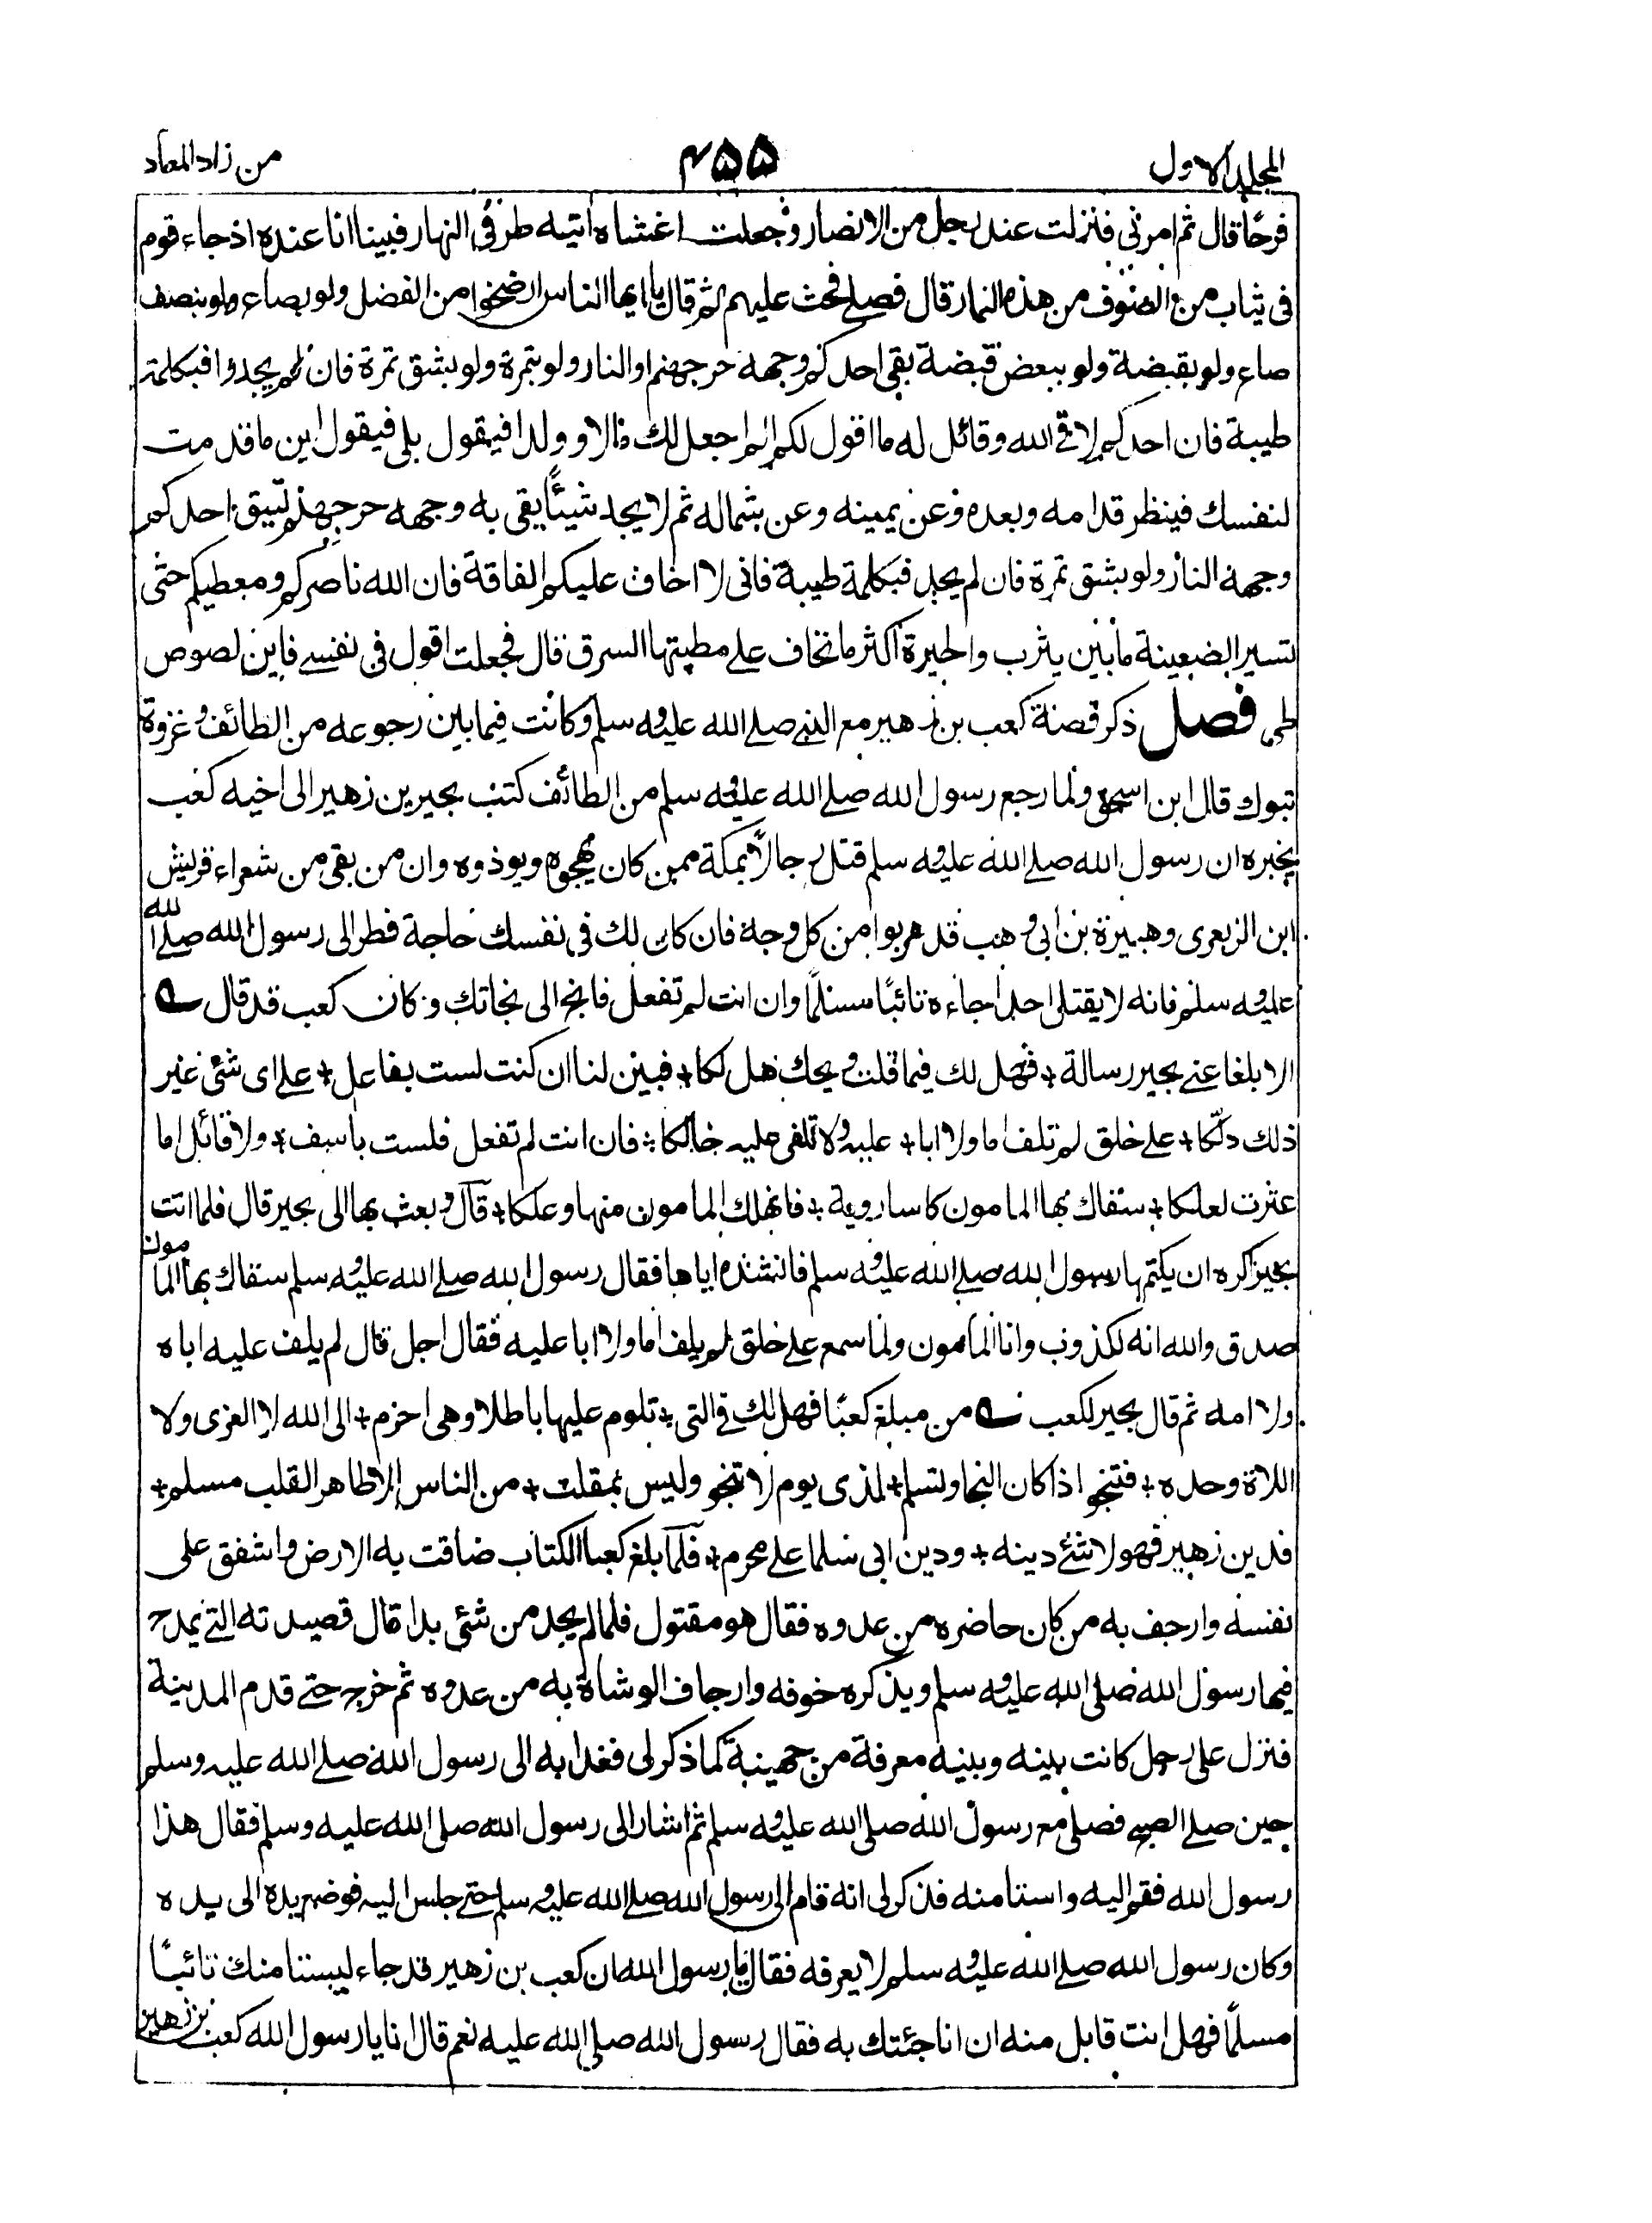 المجلد الاول
۴۵۵
من زاد المعاد
فرحًا قال ثم امرنی فنزلت عند رجل من الانصار وجعلت اغشاه اتیه طرفی النهار فبینا انا عنده اذ جاء قوم
فی ثیاب من الصوف من هذه النمار قال فصلے فحث علیهم ثم قال یا ایها الناس ارضخوا من الفضل ولو بصاع ولو بنصف
صاع ولو بقبضة ولو ببعض قبضة یقی احدکم وجهه حر جهنم او النار ولو بتمرة ولو بشق تمرة فان لم یجدوا فبکلمة
طیبة فان احدکم لاقی الله وقائل له ما اقول لکم الم اجعل لك مالا وولدا فیقول بلی فیقول این ما قدمت
لنفسك فینظر قدامه وبعده وعن یمینه وعن شماله ثم لا یجد شیئًا یقی به وجهه حر جهنم لیق احدکم
وجهه النار ولو بشق تمرة فان لم یجد فبکلمة طیبة فانی لا اخاف علیکم الفاقة فان الله ناصرکم ومعطیکم حتی
تسیر الضعینة ما بین یثرب والحیرة اکثر ما تخاف علے مطیتها السرق قال فجعلت اقول فی نفسے فاین لصوص
طی فصل ذکر قصة کعب بن زهیر مع النبے صلے الله علیه وسلم وکانت فیما بین رجوعه من الطائف وغزوة
تبوك قال ابن اسحق ولما رجع رسول الله صلے الله علیه وسلم من الطائف کتب بجیر بن زهیر الی اخیه کعب
یخبره ان رسول الله صلے الله علیه وسلم قتل رجالًا بمکة ممن کان یهجوه ویوذوه وان من بقی من شعراء قریش
ابن الزبعری وهبیرة بن ابی وهب قد هربوا من کل وجه فان کان لك فی نفسك حاجة فطر الی رسول الله صلے الله
علیه وسلم فانه لا یقتل احدا جاءه تائبًا مسلمًا وان انت لم تفعل فانج الی نجاتك وکان کعب قد قال
الا بلغا عنے بجیر رسالة + فهل لك فیما قلت ویحك هل لکا + فبین لنا ان کنت لست بفاعل + علے ای شئ غیر
ذلك دلّکا + علے خلق لم تلف اما ولا ابا + علیه ولا تلفی علیه خالکا + فان انت لم تفعل فلست باسف + ولا قائل اما
عثرت لعلکا + سقاك بها المامون کاسا رویة + فانهلك المامون منها وعلکا + قال وبعث بها الی بجیر قال فلما اتت
بجیر کره ان یکتمها رسول الله صلے الله علیه وسلم فانشده ایاها فقال رسول الله صلے الله علیه وسلم سقاك بها المامون
صدق والله انه لکذوب وانا المامون ولما سمع علے خلق لم یلف اما ولا ابا علیه فقال اجل قال لم یلف علیه اباه
ولا امه ثم قال بجیر لکعب من مبلغ کعبًا فهل لك فی التی + تلوم علیها باطلا وهی احزم + الی الله لا العزی ولا
اللاة وحده + فتنجو اذا کان النجا وتسلم + لدی یوم لا تنجو ولیس بمفلت + من الناس الا طاهر القلب مسلم +
فدین زهیر فهو لا شئے دینه + ودین ابی سلما علے محرم + فلما بلغ کعبا الکتاب ضاقت به الارض واشفق علی
نفسه وارجف به من کان حاضره من عدوه فقال هو مقتول فلما لم یجد من شئ بدا قال قصیدته التے یمدح
فیها رسول الله صلی الله علیه وسلم ویذکره خوفه وارجاف الوشاة به من عدوه ثم خرج حتے قدم المدینة
فنزل علی رجل کانت بینه وبینه معرفة من جهینة کما ذکر لی فغدا به الی رسول الله صلے الله علیه وسلم
حین صلے الصبح فصلی مع رسول الله صلی الله علیه وسلم ثم اشار الی رسول الله صلی الله علیه وسلم فقال هذا
رسول الله فقم الیه واستامنه فذکر لی انه قام الی رسول الله صلے الله علیه وسلم حتے جلس الیه فوضع یده الی یده
وکان رسول الله صلے الله علیه وسلم لا یعرفه فقال یا رسول الله ان کعب بن زهیر قد جاء لیستامنك تائبًا
مسلمًا فهل انت قابل منه ان انا جئتك به فقال رسول الله صلی الله علیه نعم قال انا یا رسول الله کعب بن زهیر